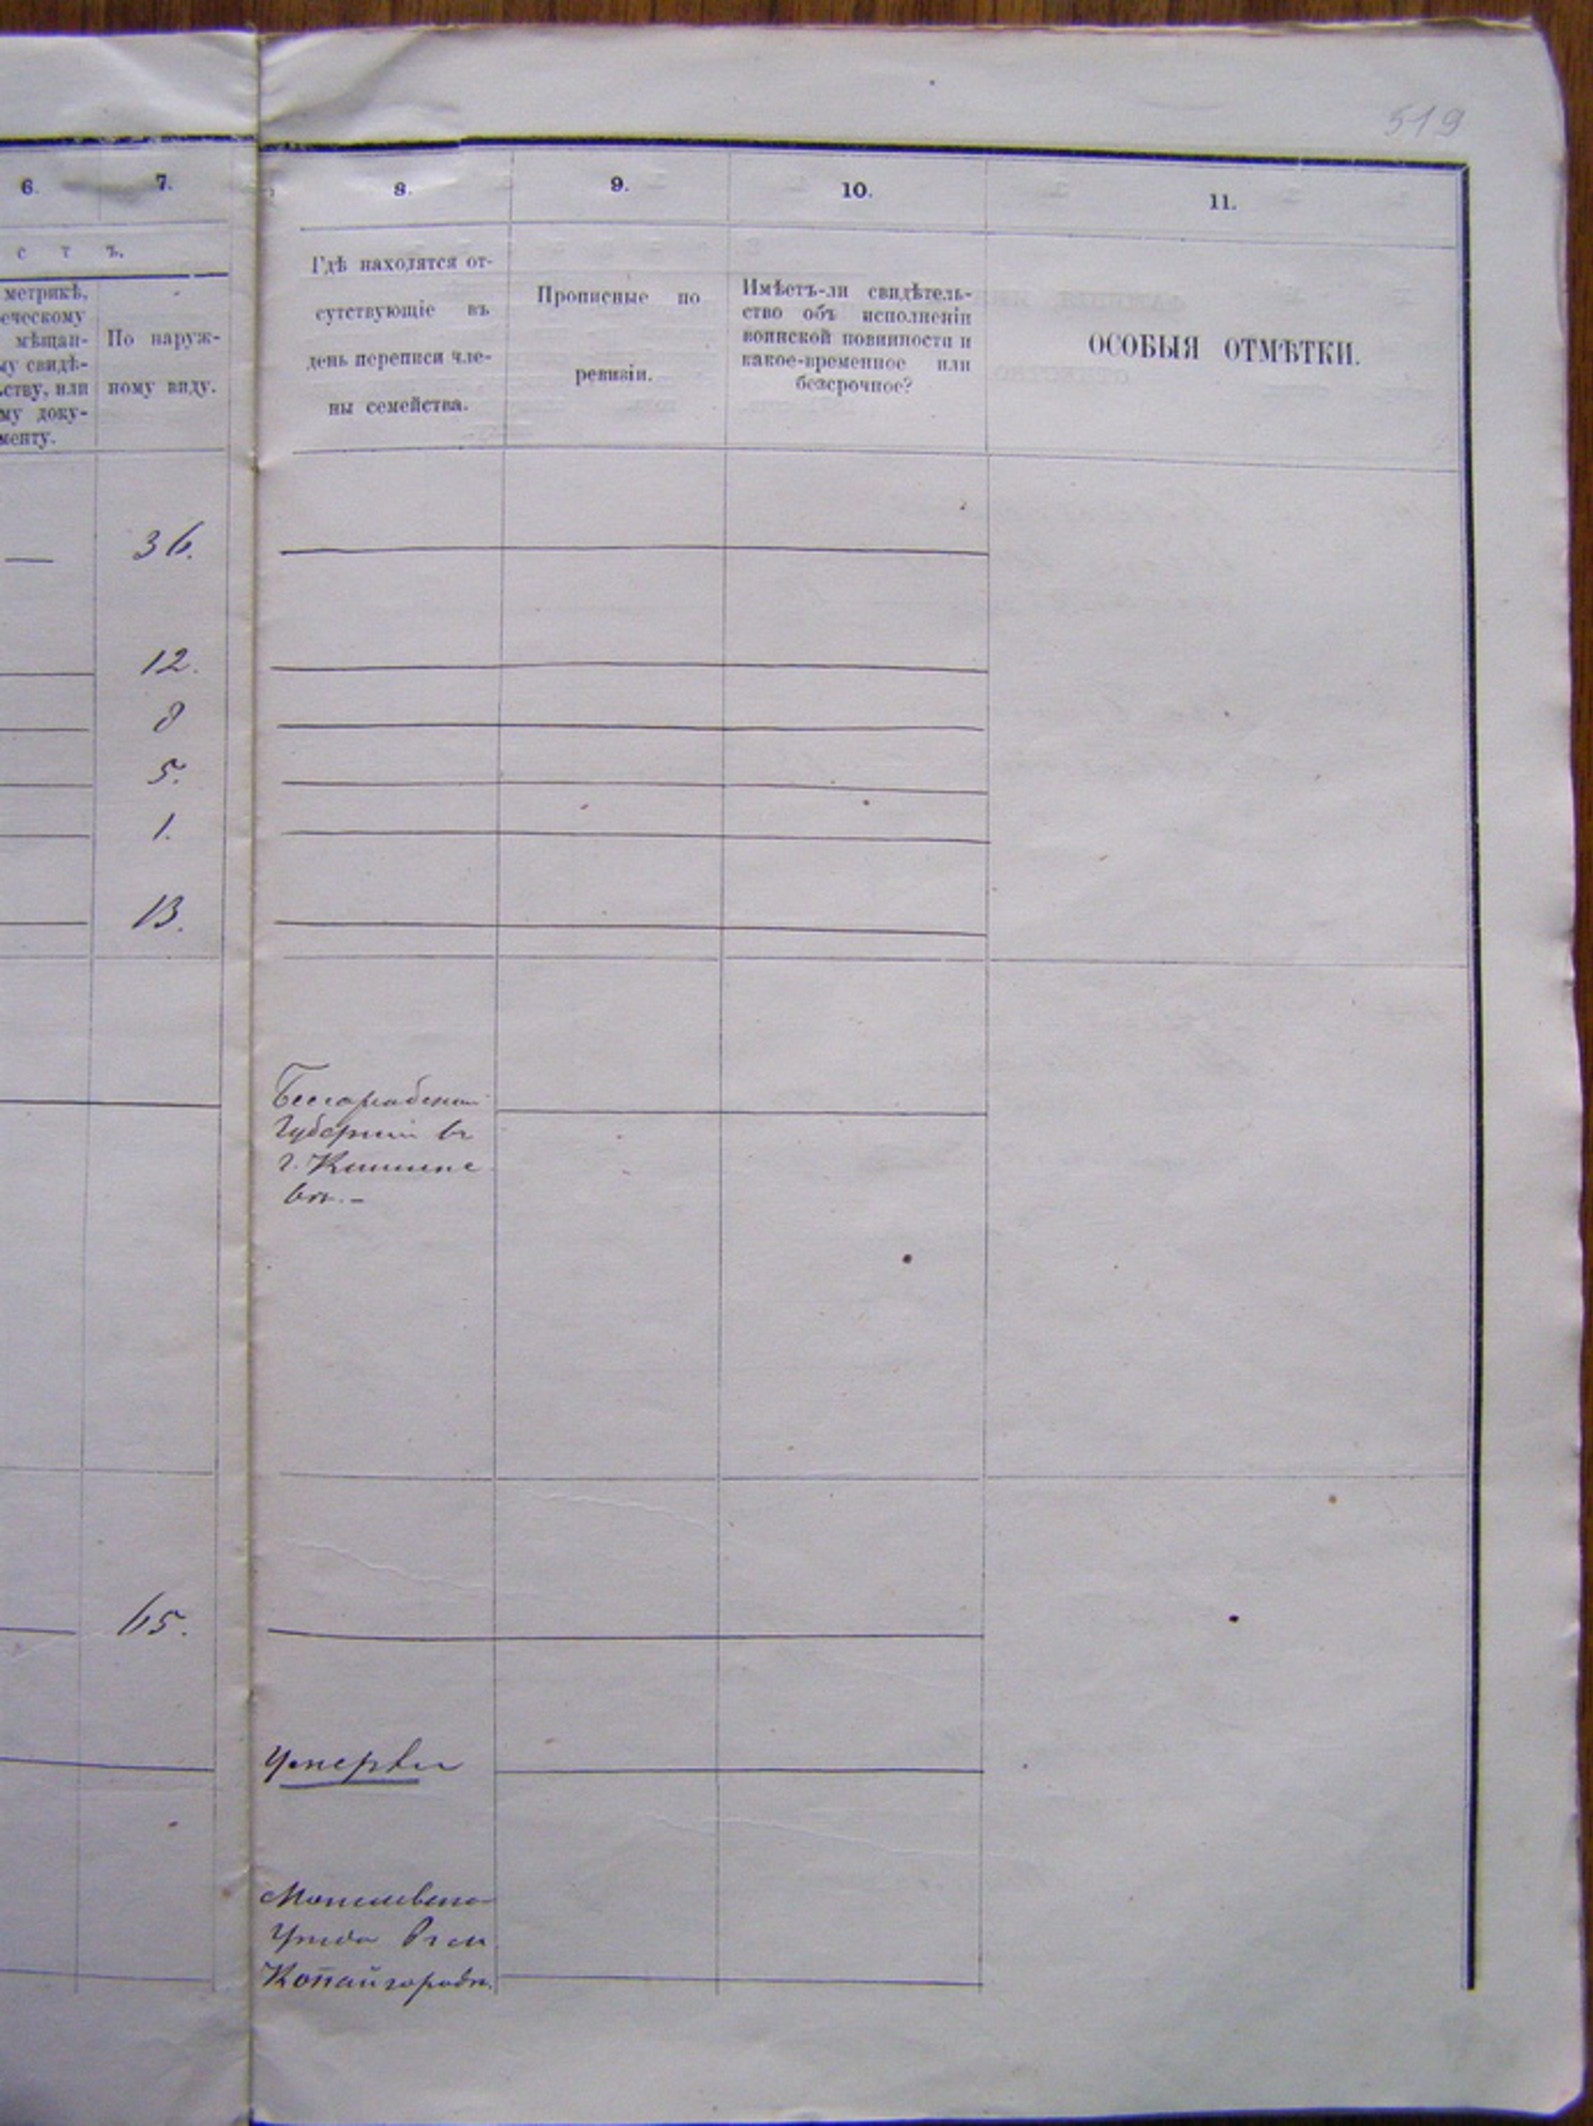 519
6. 7. 8. 9. 10. 11.
с т ъ.
метрикѣ,
еческому
мѣщан-
му свидѣ-
ьству, или
му доку-
менту.
По наруж-
ному виду.
Гдѣ находятся от-
сутствующіе въ
день переписи чле-
ны семейства.
Прописные по
ревизіи.
Имѣетъ-ли свидѣтель-
ство объ исполненіи
воинской повинности и
какое-временное или
безсрочное?
ОСОБЫЯ ОТМѢТКИ.
36.
12.
8
5.
1.
13.
Бессарабской
Губерніи въ
г. Кишине
вѣ. -
65.
Умерли
Могилевскаго
Уѣзда въ м.
Копайгородѣ.